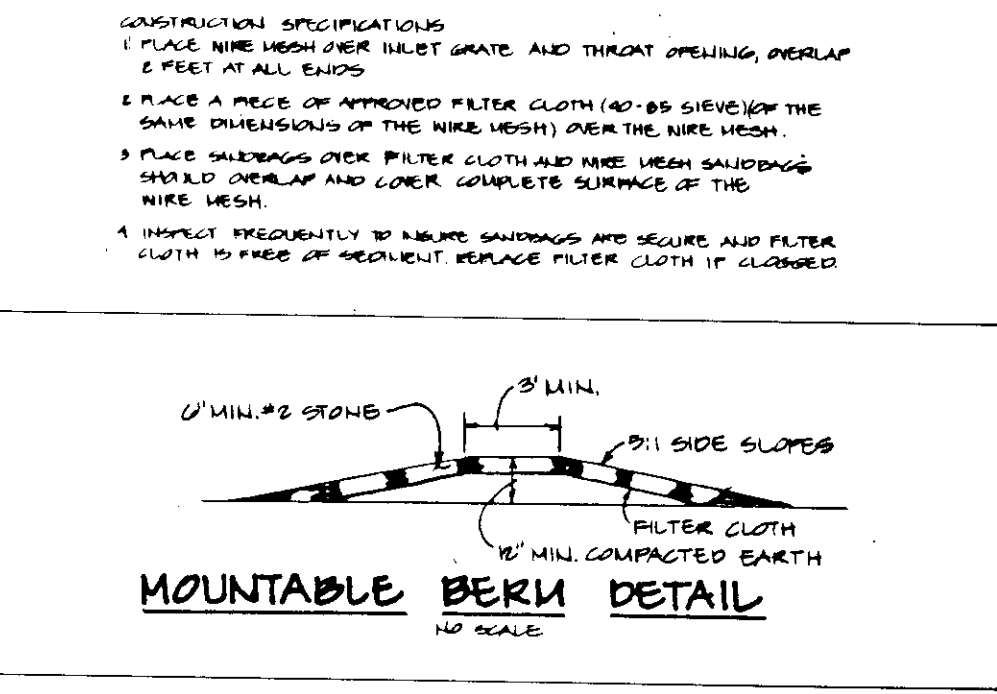 CONSTRUCTION SPECIFICATIONS
1. PLACE WIRE MESH OVER INLET GRATE AND THROAT OPENING, OVERLAP
2 FEET AT ALL ENDS
2 PLACE A PIECE OF APPROVED FILTER CLOTH (40-85 SIEVE)(OF THE
SAME DIMENSIONS OF THE WIRE MESH) OVER THE WIRE MESH.
3 PLACE SANDBAGS OVER FILTER CLOTH AND WIRE MESH SANDBAGS
SHOULD OVERLAP AND COVER COMPLETE SURFACE OF THE
WIRE MESH.
4 INSPECT FREQUENTLY TO INSURE SANDBAGS ARE SECURE AND FILTER
CLOTH IS FREE OF SEDIMENT. REPLACE FILTER CLOTH IF CLOGGED.
3' MIN.
6" MIN. #2 STONE
5:1 SIDE SLOPES
FILTER CLOTH
12" MIN. COMPACTED EARTH
MOUNTABLE BERM DETAIL
NO SCALE